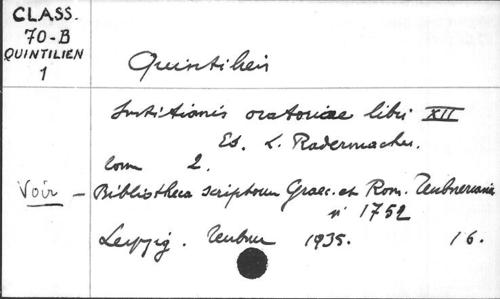 CLASS.
70-B
QUINTILIEN
1
Quintilien
Institutionis oratoriae libri XII
Ed. L. Radermacher.
Tom 2.
Voir - Bibliotheca scriptorum Graec. et Rom. Teubneriana
n° 1752
Leipzig. Teubner 1935. 16.